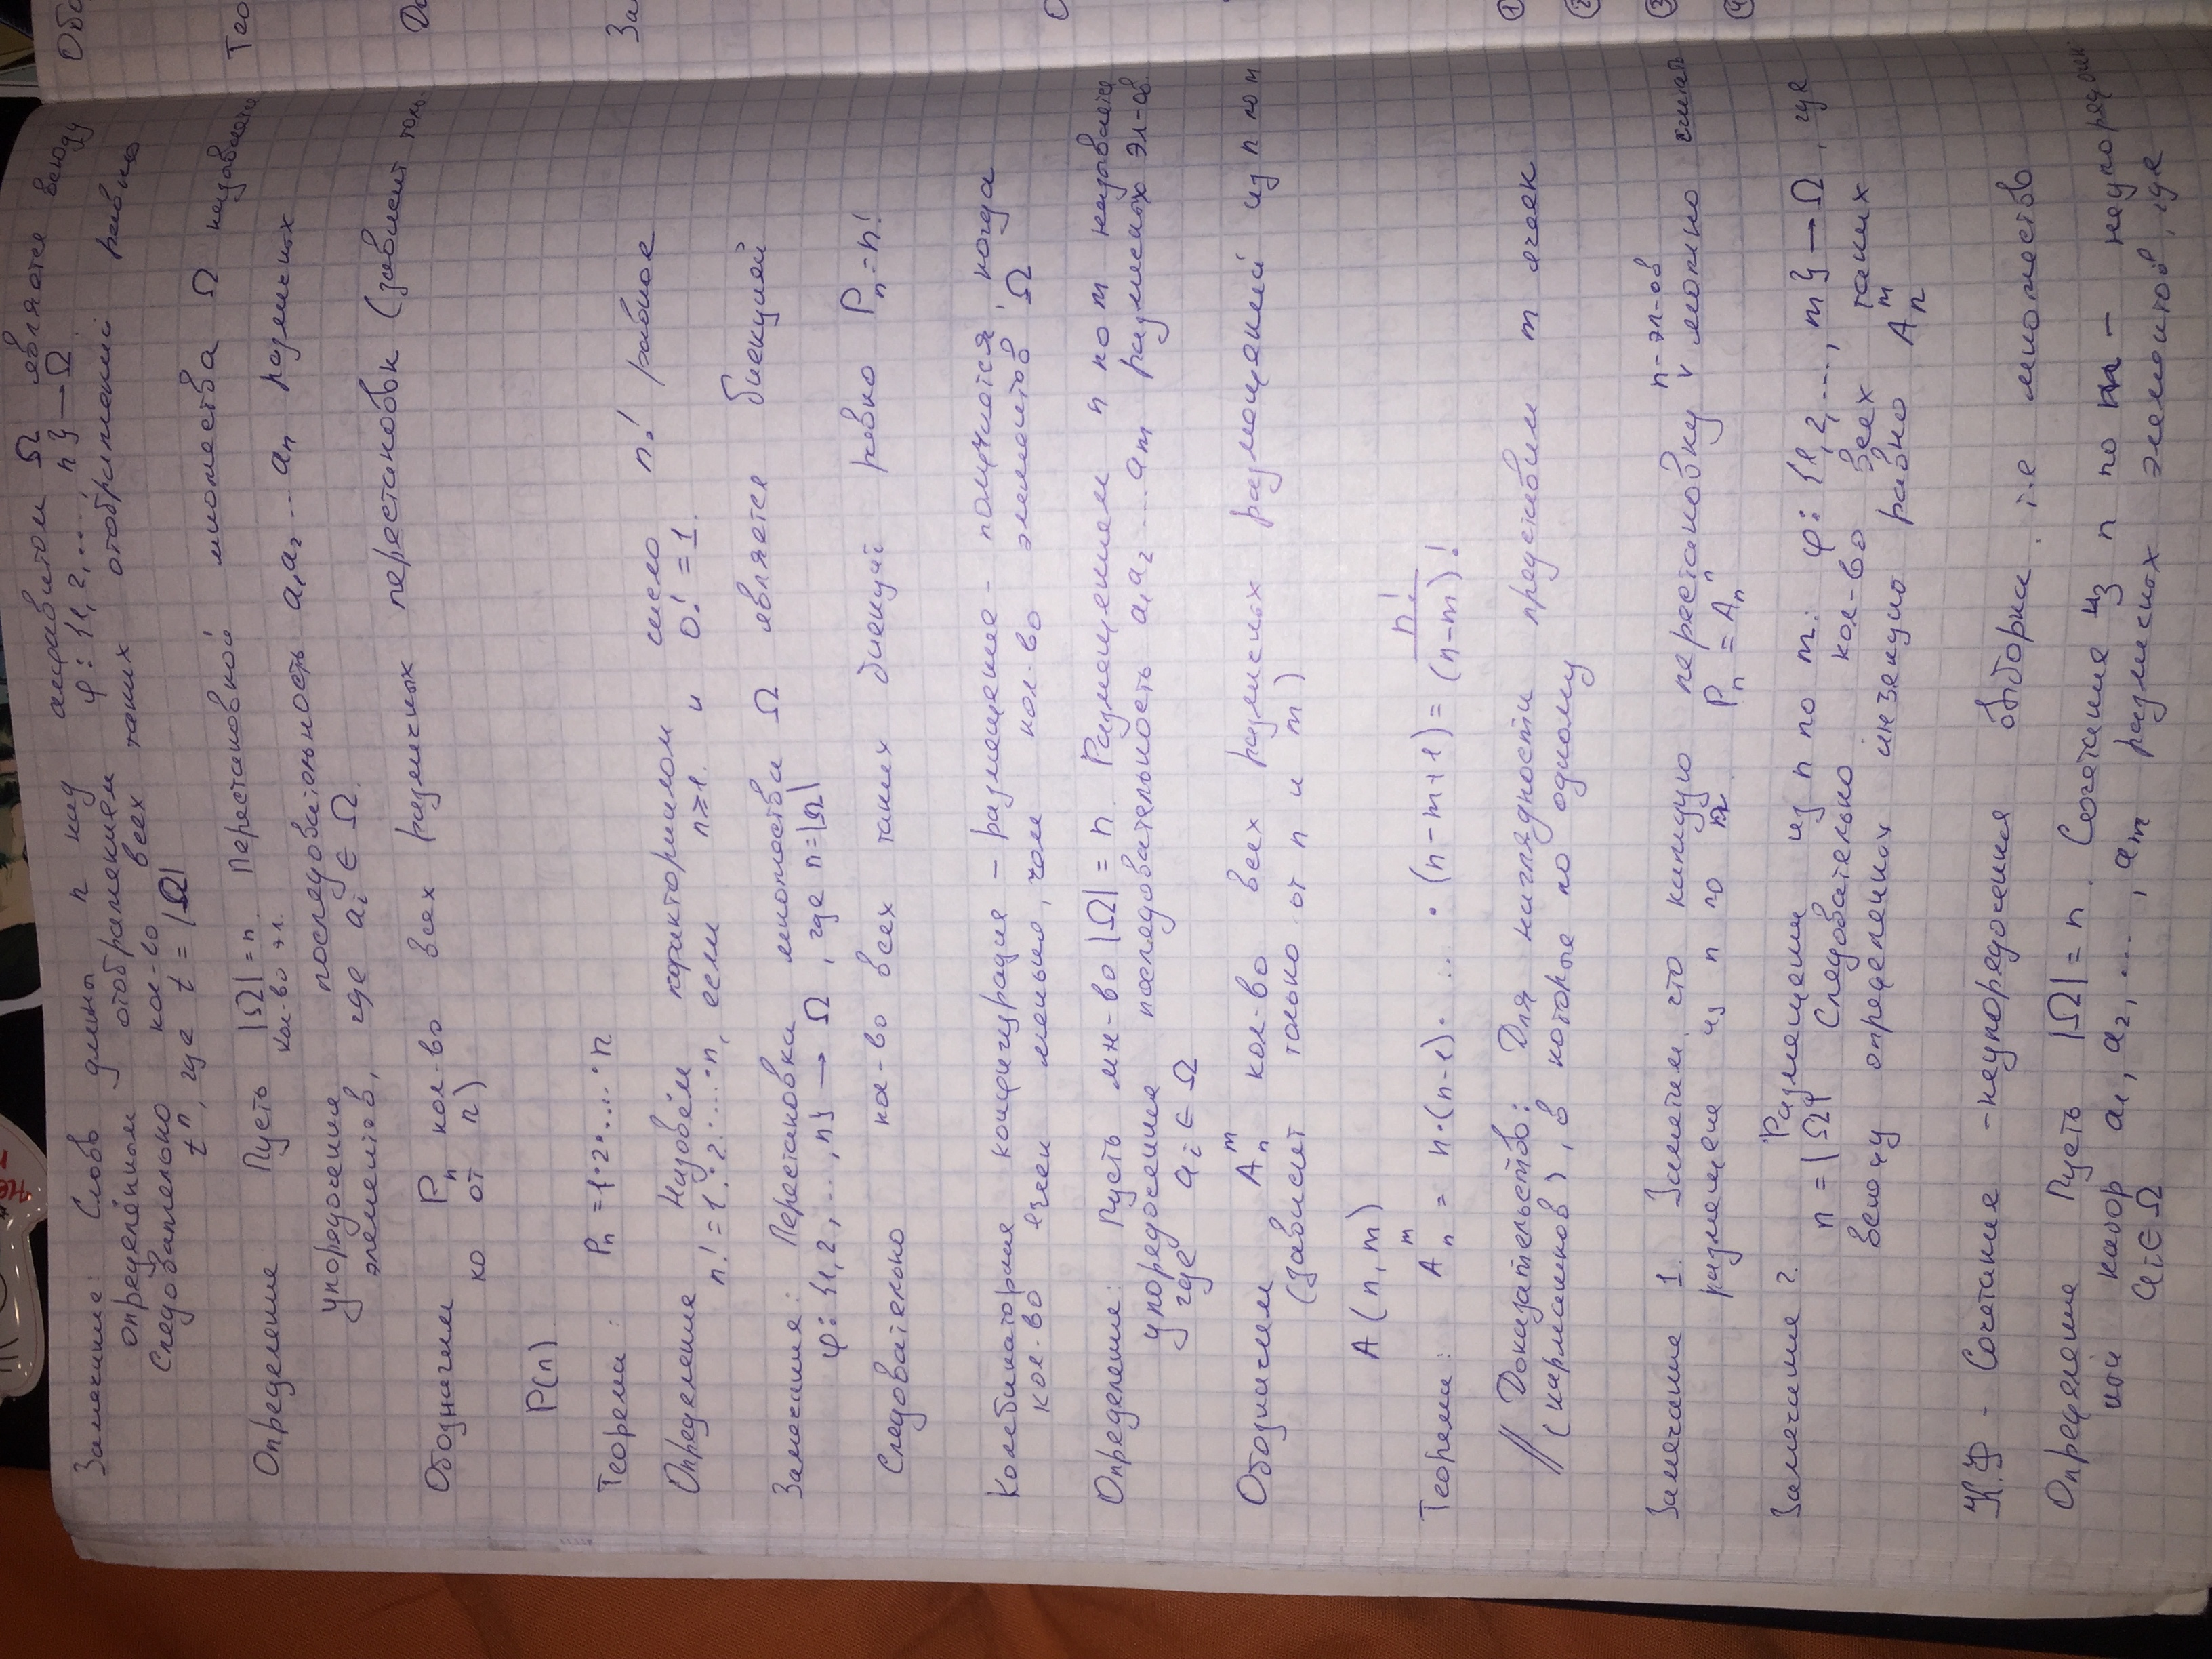 Замечание: Слово длины n над алфавитом Ω является всюду
определённым отображением φ: {1, 2, ..., n} → Ω.
Следовательно кол-во всех таких отображений равно
tⁿ, где t = |Ω|
Определение Пусть |Ω| = n. Перестановкой множества Ω называется
кол-во эл.
упорядочение последовательность a₁a₂ ... aₙ различных
элементов, где aᵢ ∈ Ω.
Обозначим Pₙ кол-во всех различных перестановок (зависит толь-
ко от n)
P(n)
Теорема: Pₙ = 1·2·....·n
Определение Назовём факториалом число n! равное
n! = 1·2·...·n, если n≥1. и 0! = 1.
Замечание: Перестановка множества Ω является биекцией
φ: {1, 2, ..., n} → Ω, где n=|Ω|
Следовательно кол-во всех таких биекций равно Pₙ = n!
Комбинаторная конфигурация – размещение – получается, когда
кол-во ячеек меньше, чем кол-во элементов Ω
Определение: Пусть мн-во |Ω| = n Размещением n по m называется
упорядочение последовательность a₁a₂ ... aₘ различных эл-ов.
где aᵢ ∈ Ω
Обозначим Aₙᵐ кол-во всех различных размещений из n по m
(зависит только от n и m)
A (n, m)
Теорема: Aₙᵐ = n·(n-1)· ... ·(n-m+1) = n!/(n-m)!
// Доказательство: Для наглядности представим m ячеек
(кармашков), в которые по одному
n-эл-ов
Замечание 1. Заметим, что каждую перестановку ∨ можно считать
размещение из n по n. Pₙ = Aₙⁿ
Замечание 2. Размещения из n по m: φ: {1, 2, ..., m} → Ω, где
n = |Ω| Следовательно кол-во всех таких
всюду определенных инъекцию равно Aₙᵐ
К.Ф - Сочетание - неупорядочения выборка, т.е множество
Определение Пусть |Ω| = n. Сочетание из n по m – неупорядочен
ный набор a₁, a₂, ..., aₘ различных элементов, где
aᵢ ∈ Ω
Тео
До
①
②
③
④